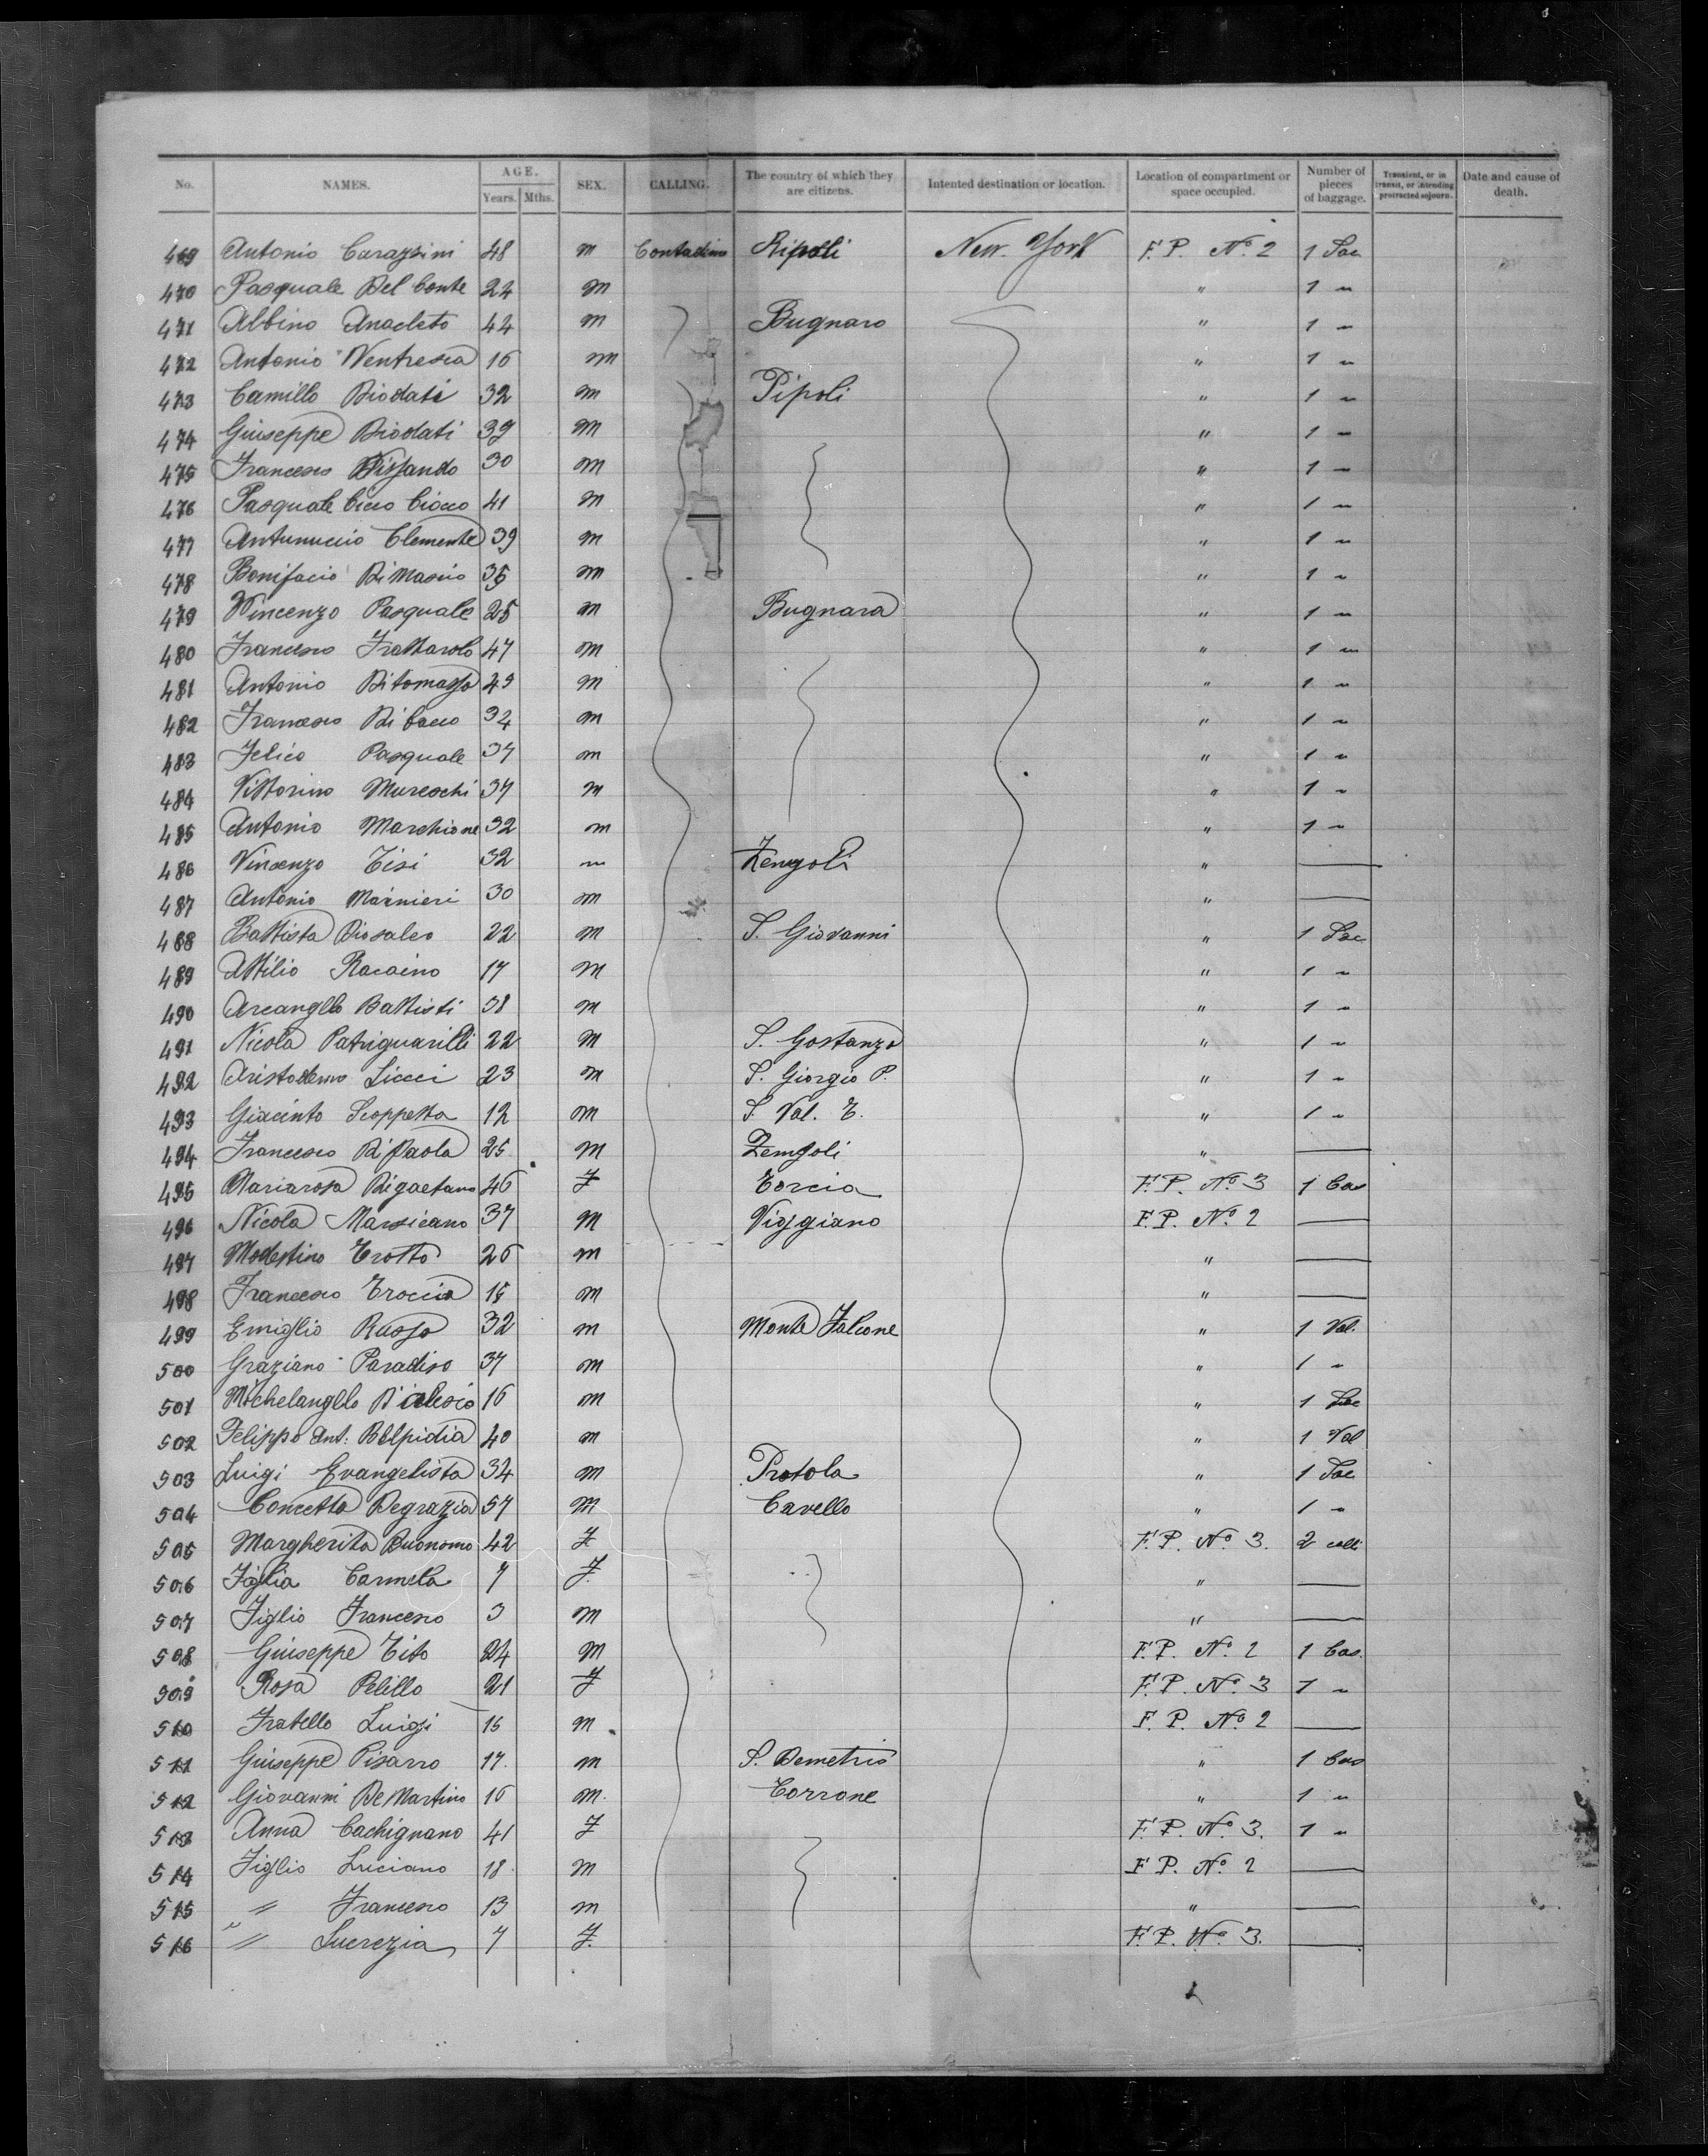 No. NAMES. AGE. Years. Mths. SEX. CALLING. The country of which they are citizens. Intented destination or location. Location of compartment or space occupied. Number of pieces of baggage. Transient, or in transit, or intending protracted sojourn. Date and cause of death.
469 Antonio Carazzini 48 m Contadino Ripoli New-York F.P. No. 2 1 Sac
470 Pasquale Del Conte 22 m " 1 "
471 Albino Anacleto 42 m Bugnaro " 1 "
472 Antonio Ventresca 16 m " 1 "
473 Camillo Diodati 32 m Pipoli " 1 "
474 Giuseppe Diodati 39 m " 1 "
475 Francesco 30 m " 1 "
476 Pasquale Cicco Ciocco 41 m " 1 "
477 Antunuccio Clemente 39 m " 1 "
478 Bonifacio Di Mascio 35 m " 1 "
479 Vincenzo Pasquale 25 m Bugnara " 1 "
480 Francesco Frattarolo 47 m " 1 "
481 Antonio Ditomasso 29 m " 1 "
482 Francesco Di Bacco 32 m " 1 "
483 Felice Pasquale 37 m " 1 "
484 Vittorino Mureschi 37 m " 1 "
485 Antonio Marchione 32 m " 1 "
486 Vincenzo Tisi 32 m Zengoli "
487 Antonio Mainieri 30 m "
488 Battista Diosaleo 22 m S. Giovanni " 1 Sac
489 Attilio Racaino 17 m " 1 "
490 Arcangelo Battisti 38 m " 1 "
491 Nicola Patriguarilli 22 m S. Gostanzo " 1 "
492 Aristodemo Liccei 23 m S. Giorgio P. " 1 "
493 Giacinto Scoppetta 12 m S. Val. T. " 1 "
494 Francesco Di Paola 25 m Zemgoli "
495 Mariarosa Digaetano 46 F Torcia F.P. No. 3 1 Cas
496 Nicola Marsicano 37 m Viggiano F.P. No. 2
497 Modestino Trotto 26 m "
498 Francesco Troccia 15 m "
499 Emiglio Russo 32 m Monte Falcone " 1 Val.
500 Graziano Paradiso 37 m " 1 "
501 Michelangelo D'Alesio 16 m " 1 Sac
502 Felippo Ant. Belpidia 40 m " 1 Val
503 Luigi Evangelista 34 m Pratola " 1 Sac
504 Concetta Degrazia 57 m Cavello " 1 "
505 Margherita Buonomo 42 F F.P. No. 3. 2 colli
506 Figlia Carmela 7 F. "
507 Figlio Francesco 3 m "
508 Giuseppe Tito 24 m F.P. No. 2 1 Cas.
509 Rosa Pelillo 21 F F.P. No. 3 1 "
510 Fratello Luigi 15 m F.P. No. 2
511 Giuseppe Pisarro 17. m S. Demetrio " 1 Cas
512 Giovanni De Martino 16 m. Torrone " 1 "
513 Anna Cachignano 41 F F.P. No. 3. 1 "
514 Figlio Luciano 18 m F.P. No. 2
515 " Francesco 13 m "
516 " Lucrezia 7 F. F.P. No. 3.